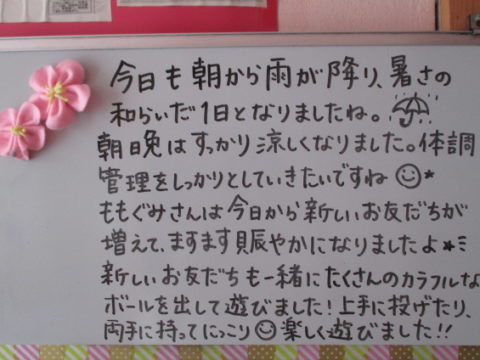 今日も朝から雨が降り、暑さの
和らいだ1日となりましたね。☂
朝晩はすっかり涼しくなりました。体調
管理をしっかりとしていきたいですね☺★
ももぐみさんは今日から新しいお友だちが
増えて、ますます賑やかになりましたよ★ミ
新しいお友だちも一緒にたくさんのカラフルな
ボールを出して遊びました!上手に投げたり、
両手に持ってにっこり☺楽しく遊びました!!